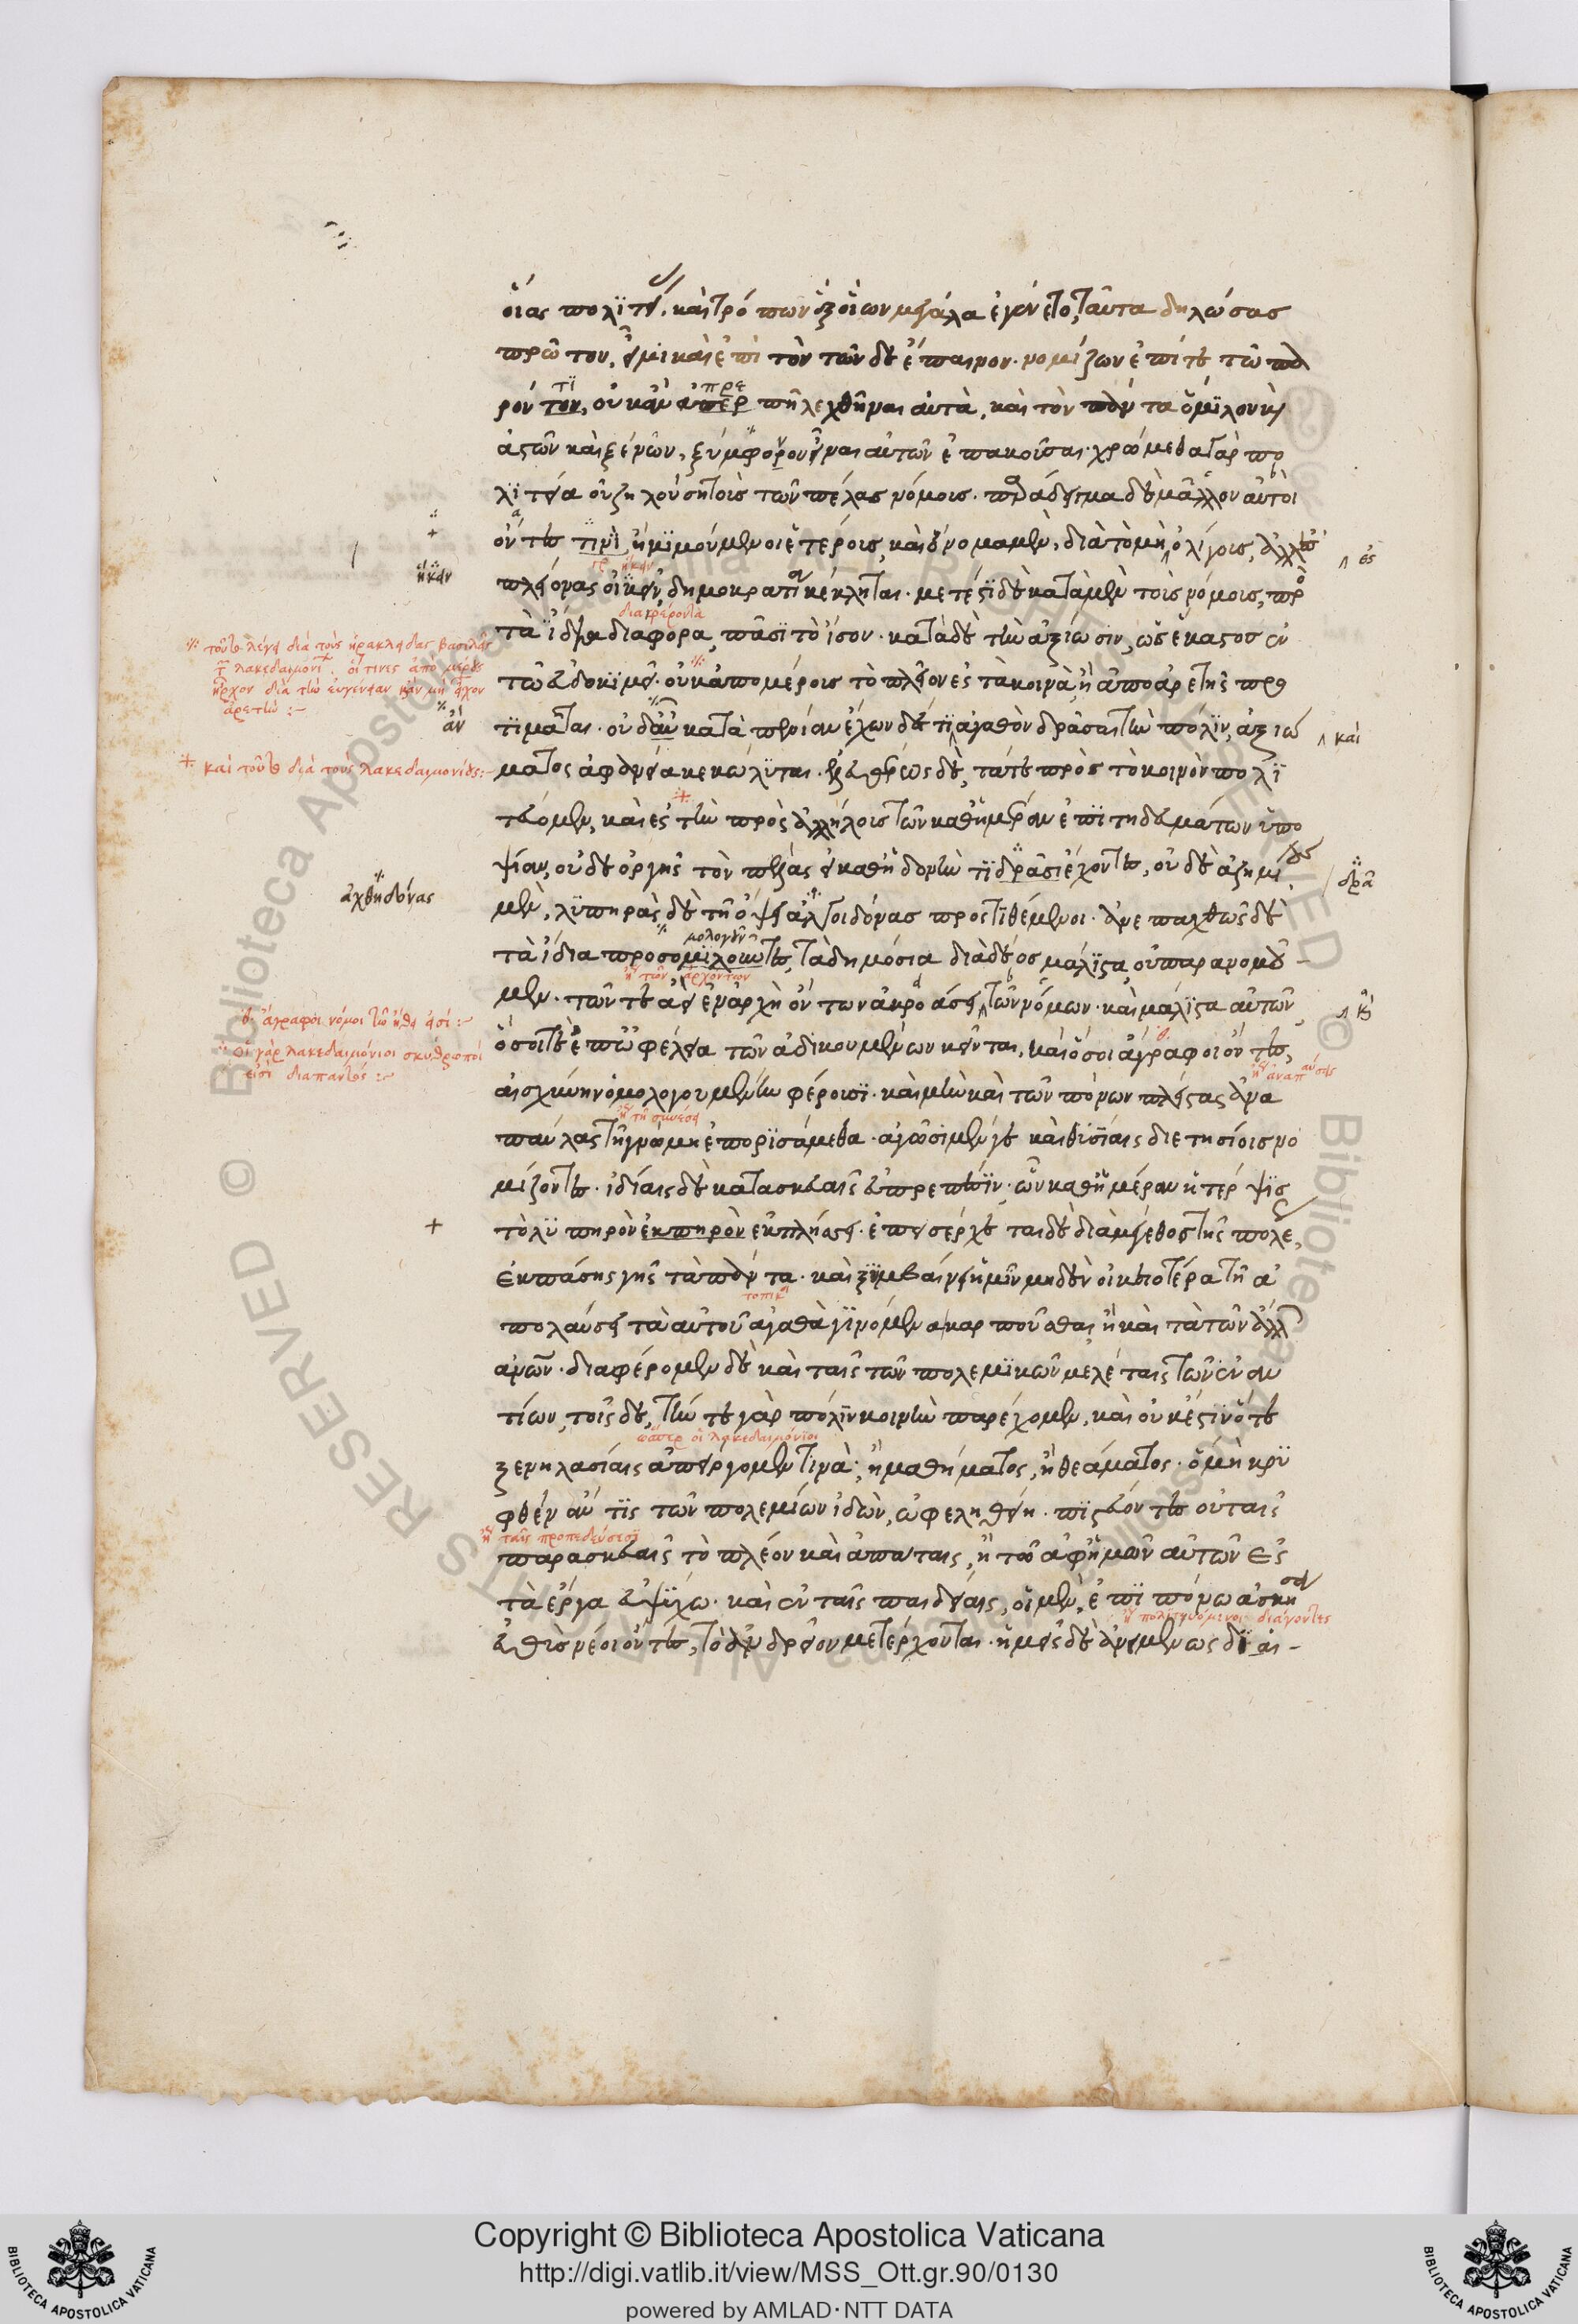 οἵας πολϊτεί, καὶ τρόπων ἐξ οἵων μεγάλα ἐγένετο, ταῦτα δηλώσας
πρῶτον, εἶμι καὶ ἐπὶ τὸν τῶνδε ἔπαινον. νομίζων ἐπί τε τῶ πα
ρόντϊ, οὐκ ἂν ἀπρεπῆ λεχθῆναι αὐτὰ, καὶ τὸν πάντα ὅμϊλον καὶ
ἀστῶν καὶ ξένων, ξύμφορον εἶναι αὐτῶν ἐπακοῦσαι. χρώμεθα γὰρ πο
λϊτεία οὐ ζηλούσῃ τοὺς τῶν πέλας νόμους. παράδειγμα δὲ μᾶλλον αὐτοὶ
ὄντες τινὶ ἢ μϊμούμενοι ἑτέρους, καὶ ὄνομα μὲν, διὰ τὸ μὴ ὀλίγους, ἀλλ' ἐς
πλείονας οἰκεῖν, δημοκρατία κέκληται. μέτεστϊ δὲ κατὰ μὲν τοὺς νόμους, πρὸ
τὰ ἴδια διάφορα, πᾶσϊ τὸ ἴσον. κατὰ δὲ τὴν ἀξίωσιν, ὡς ἕκαστος ἐν
τῶ εὐδοκϊμεῖ. οὐκ ἀπὸ μέρους τὸ πλεῖον ἐς τὰ κοινὰ, ἢ ἀπὸ ἀρετῆς προ
τϊμᾶται. οὐδ' ἂν κατὰ πενίαν ἔχων δέ τϊ ἀγαθὸν δρᾶσαι τὴν πόλϊν, ἀξιώ
ματος ἀφανεία κεκώλϋται. ἐλευθέρως δὲ, τά τε πρὸς τὸ κοινὸν πολϊ
τεύομεν, καὶ ἐς τὴν πρὸς ἀλλήλους τῶν καθ' ἡμέραν ἐπϊτηδευμάτων ὑπο
ψίαν, οὐ δι' ὀργῆς τὸν πέλας εἰ καθ' ἡδονὴν τϊ δρᾶσι ἔχοντες, οὐδὲ ἀζημί
μὲν, λϋπηρὰς δὲ τῆ ὄψει ἀλγηδόνας προστϊθέμενοι. ἀνεπαχθῶς δὲ
τὰ ἴδια προσομϊλοῦντες, τὰ δημόσια διὰ δέος μάλϊστα, οὐ παρανομοῦ
μεν. τῶν τε ἀεὶ ἐν ἀρχῆ ὄντων ἀκροάσει, τῶν νόμων. καὶ μάλϊστα αὐτῶν
ὅσοι τε ἐπ' ὠφελεία τῶν ἀδικουμένων κεῖνται, καὶ ὅσοι ἄγραφοι ὄντες,
αἰσχύνην ὁμολογουμένην φέρουσϊ. καὶ μὴν καὶ τῶν πόνων πλείστας ἀνα
παύλας τῆ γνώμη ἐπορϊσάμεθα. ἀγῶσϊ μέν γε καὶ θυσίαις διετησίοις νο
μίζοντες. ἰδίαις δὲ κατασκευαῖς εὐπρεπέσϊν. ὧν καθ' ἡμέραν ἡ τέρψϊς
τὸ λϋπηρὸν ἐκπηρὸν ἐκπλήσσει. ἐπεισέρχεται δὲ διὰ μέγεθος τῆς πόλε,
ἐκ πάσης γῆς τὰ πάντα. καὶ ξϋμβαίνει ἡμῖν μηδὲν οἰκειοτέρα τῆ ἀ
πολαύσει τὰ αὐτοῦ ἀγαθὰ γϊνόμενα καρποῦσθαι ἢ καὶ τὰ τῶν ἄλλ
ἀνῶν. διαφέρομεν δὲ καὶ ταῖς τῶν πολεμϊκῶν μελέταις τῶν ἐναν
τίων, τοῖς δε, τήν τε γὰρ πόλϊν κοινὴν παρέχομεν, καὶ οὐκ ἔστϊν ὅτε
ξενηλασίαις ἀπείργομέν τινὰ, ἢ μαθήματος, ἢ θεάματος. ὃ μὴ κρϋ
φθὲν ἄν τϊς τῶν πολεμίων ἰδὼν, ὠφεληθείη. πϊστεύοντες οὐ ταῖς
παρασκευαῖς τὸ πλέον καὶ ἀπάταις, ἢ τῶ ἀφ' ἡμῶν αὐτῶν ἐς
τὰ ἔργα εὐψύχω. καὶ ἐν ταῖς παιδείαις, οἱ μὲν, ἐπϊπόνω ἀσκήσει
εὐθὺς νέοι ὄντες, τὸ ἀνδρεῖον μετέρχονται. ἡμεῖς δὲ ἀνειμένως δϊαι-
μολογοῦν
διαφέροντα
τοῦτο λέγει διὰ τοὺς ἡρακλείδας βασιλεῖς
λακεδαιμονί. οἵτινες ἀπὸ μέρους
ἦρχον διὰ τὴν εὐγένειαν κἂν μὴ εἶχον
ἀρετήν :-
καὶ τοῦτο διὰ τοὺς λακεδαιμονίους :-
ἀχθηδόνας
οἱ ἄγραφοι νόμοι τὰ ἤθη εἰσί :-
οἱ γὰρ λακεδαιμόνιοι σκυθρωποί
εἰσι διαπαντός :-
ἥκειν
ἂν
ἐς
καὶ
δρᾶ
καὶ
ἢ τῶν ἀρχόντων
ἢ ἀναπαύσεις
ἢ τῆ συνέσει
ὥσπερ οἱ λακεδαιμόνιοι
ἢ ταῖς προπεδεύσεσϊ
ἢ πολιτευόμενοι διάγοντες
Copyright © Biblioteca Apostolica Vaticana
http://digi.vatlib.it/view/MSS_Ott.gr.90/0130
powered by AMLAD·NTT DATA
BIBLIOTECA APOSTOLICA VATICANA
BIBLIOTECA APOSTOLICA VATICANA